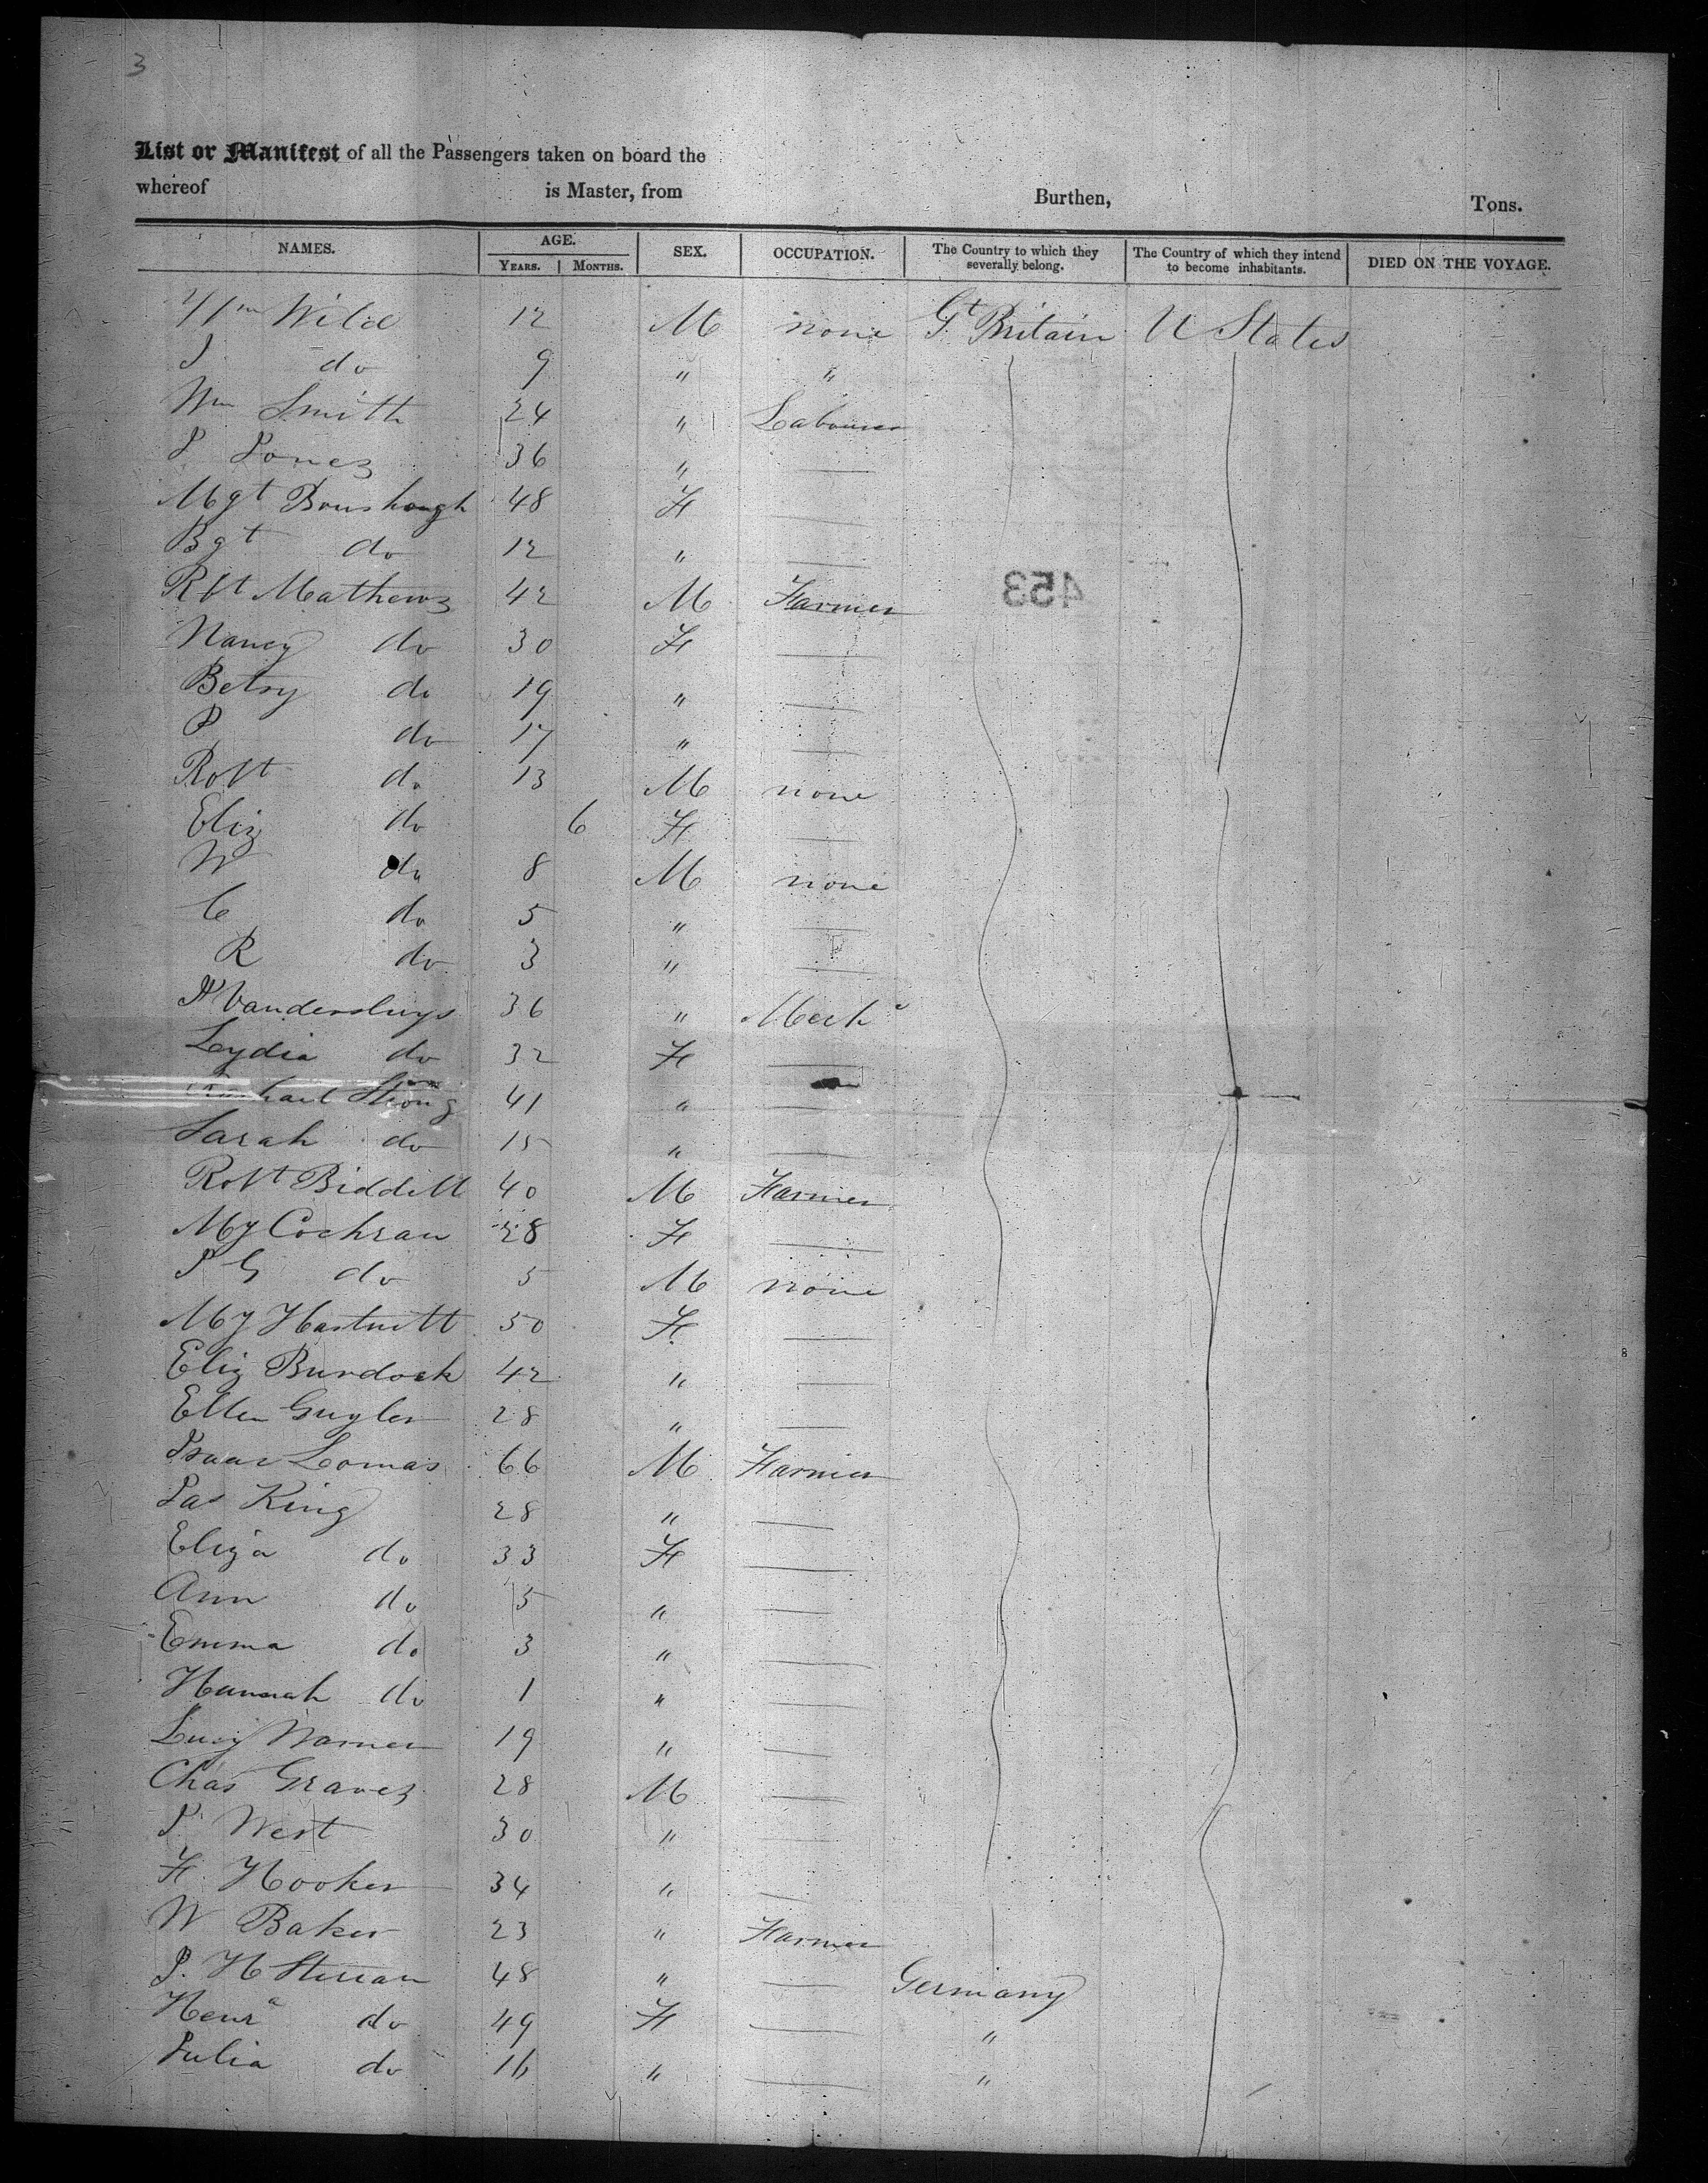 3
List or Manifest of all the Passengers taken on board the
whereof is Master, from Burthen, Tons.
NAMES. AGE. SEX. OCCUPATION. The Country to which they severally belong. The Country of which they intend to become inhabitants. DIED ON THE VOYAGE.
YEARS. MONTHS.
Wm Wild 12 M none Gt Britain U States
J do 9 " "
Wm Smith 24 " Labourer
J Jones 36 "
Mgt 48 F
Bgt do 12 "
Robt Mathews 42 M Farmer
453
Nancy do 30 F
Betsy do 19 "
P do 17 "
Robt do 13 M none
Eliz do 6 F
W do 8 M none
C do 5 "
R do 3 "
Vandersluys 36 " Mech
Lydia do 32 F
Strong 41 "
Sarah do 15 "
Robt Biddill 40 M Farmer
My Cochran 28 F
J G do 5 M none
My Hartnitt 50 F
Eliz Burdock 42 "
Ellen Gugler 28 "
Isaac Lomas 66 M Farmer
Jas King 28 "
Eliza do 33 F
Ann do 5 "
Emma do 3 "
Hannah do 1 "
Lucy Warner 19 "
Chas Graves 28 M
J West 30 "
F Hooker 34 "
W Baker 23 " Farmer
J. H 48 " Germany
Henra do 49 F "
Julia do 16 " "